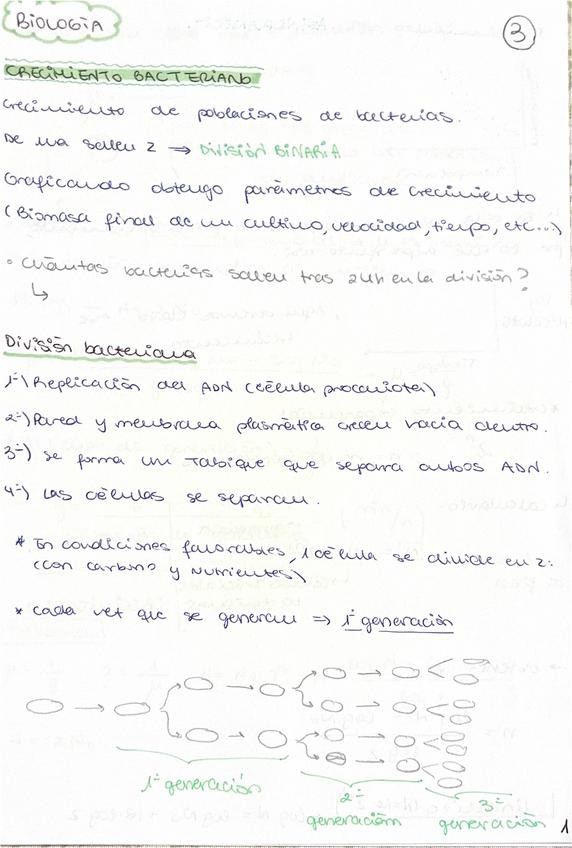 BIOLOGÍA
3
CRECIMIENTO BACTERIANO
Crecimiento de poblaciones de bacterias.
De una salen 2 → DIVISIÓN BINARIA
Graficando obtengo parámetros de crecimiento
(Biomasa final de un cultivo, velocidad, tiempo, etc...)
• Cuántas bacterias salen tras 24h en la división?
↳
División bacteriana
1º) Replicación del ADN (célula procariota)
2º) Pared y membrana plasmática crecen hacia dentro.
3º) Se forma un tabique que separa ambos ADN.
4º) Las células se separan.
* En condiciones favorables, 1 célula se divide en 2:
(con carbono y nutrientes)
* Cada vez que se generan ⇒ 1ª generación
1ª generación
2ª generación
3ª generación
1